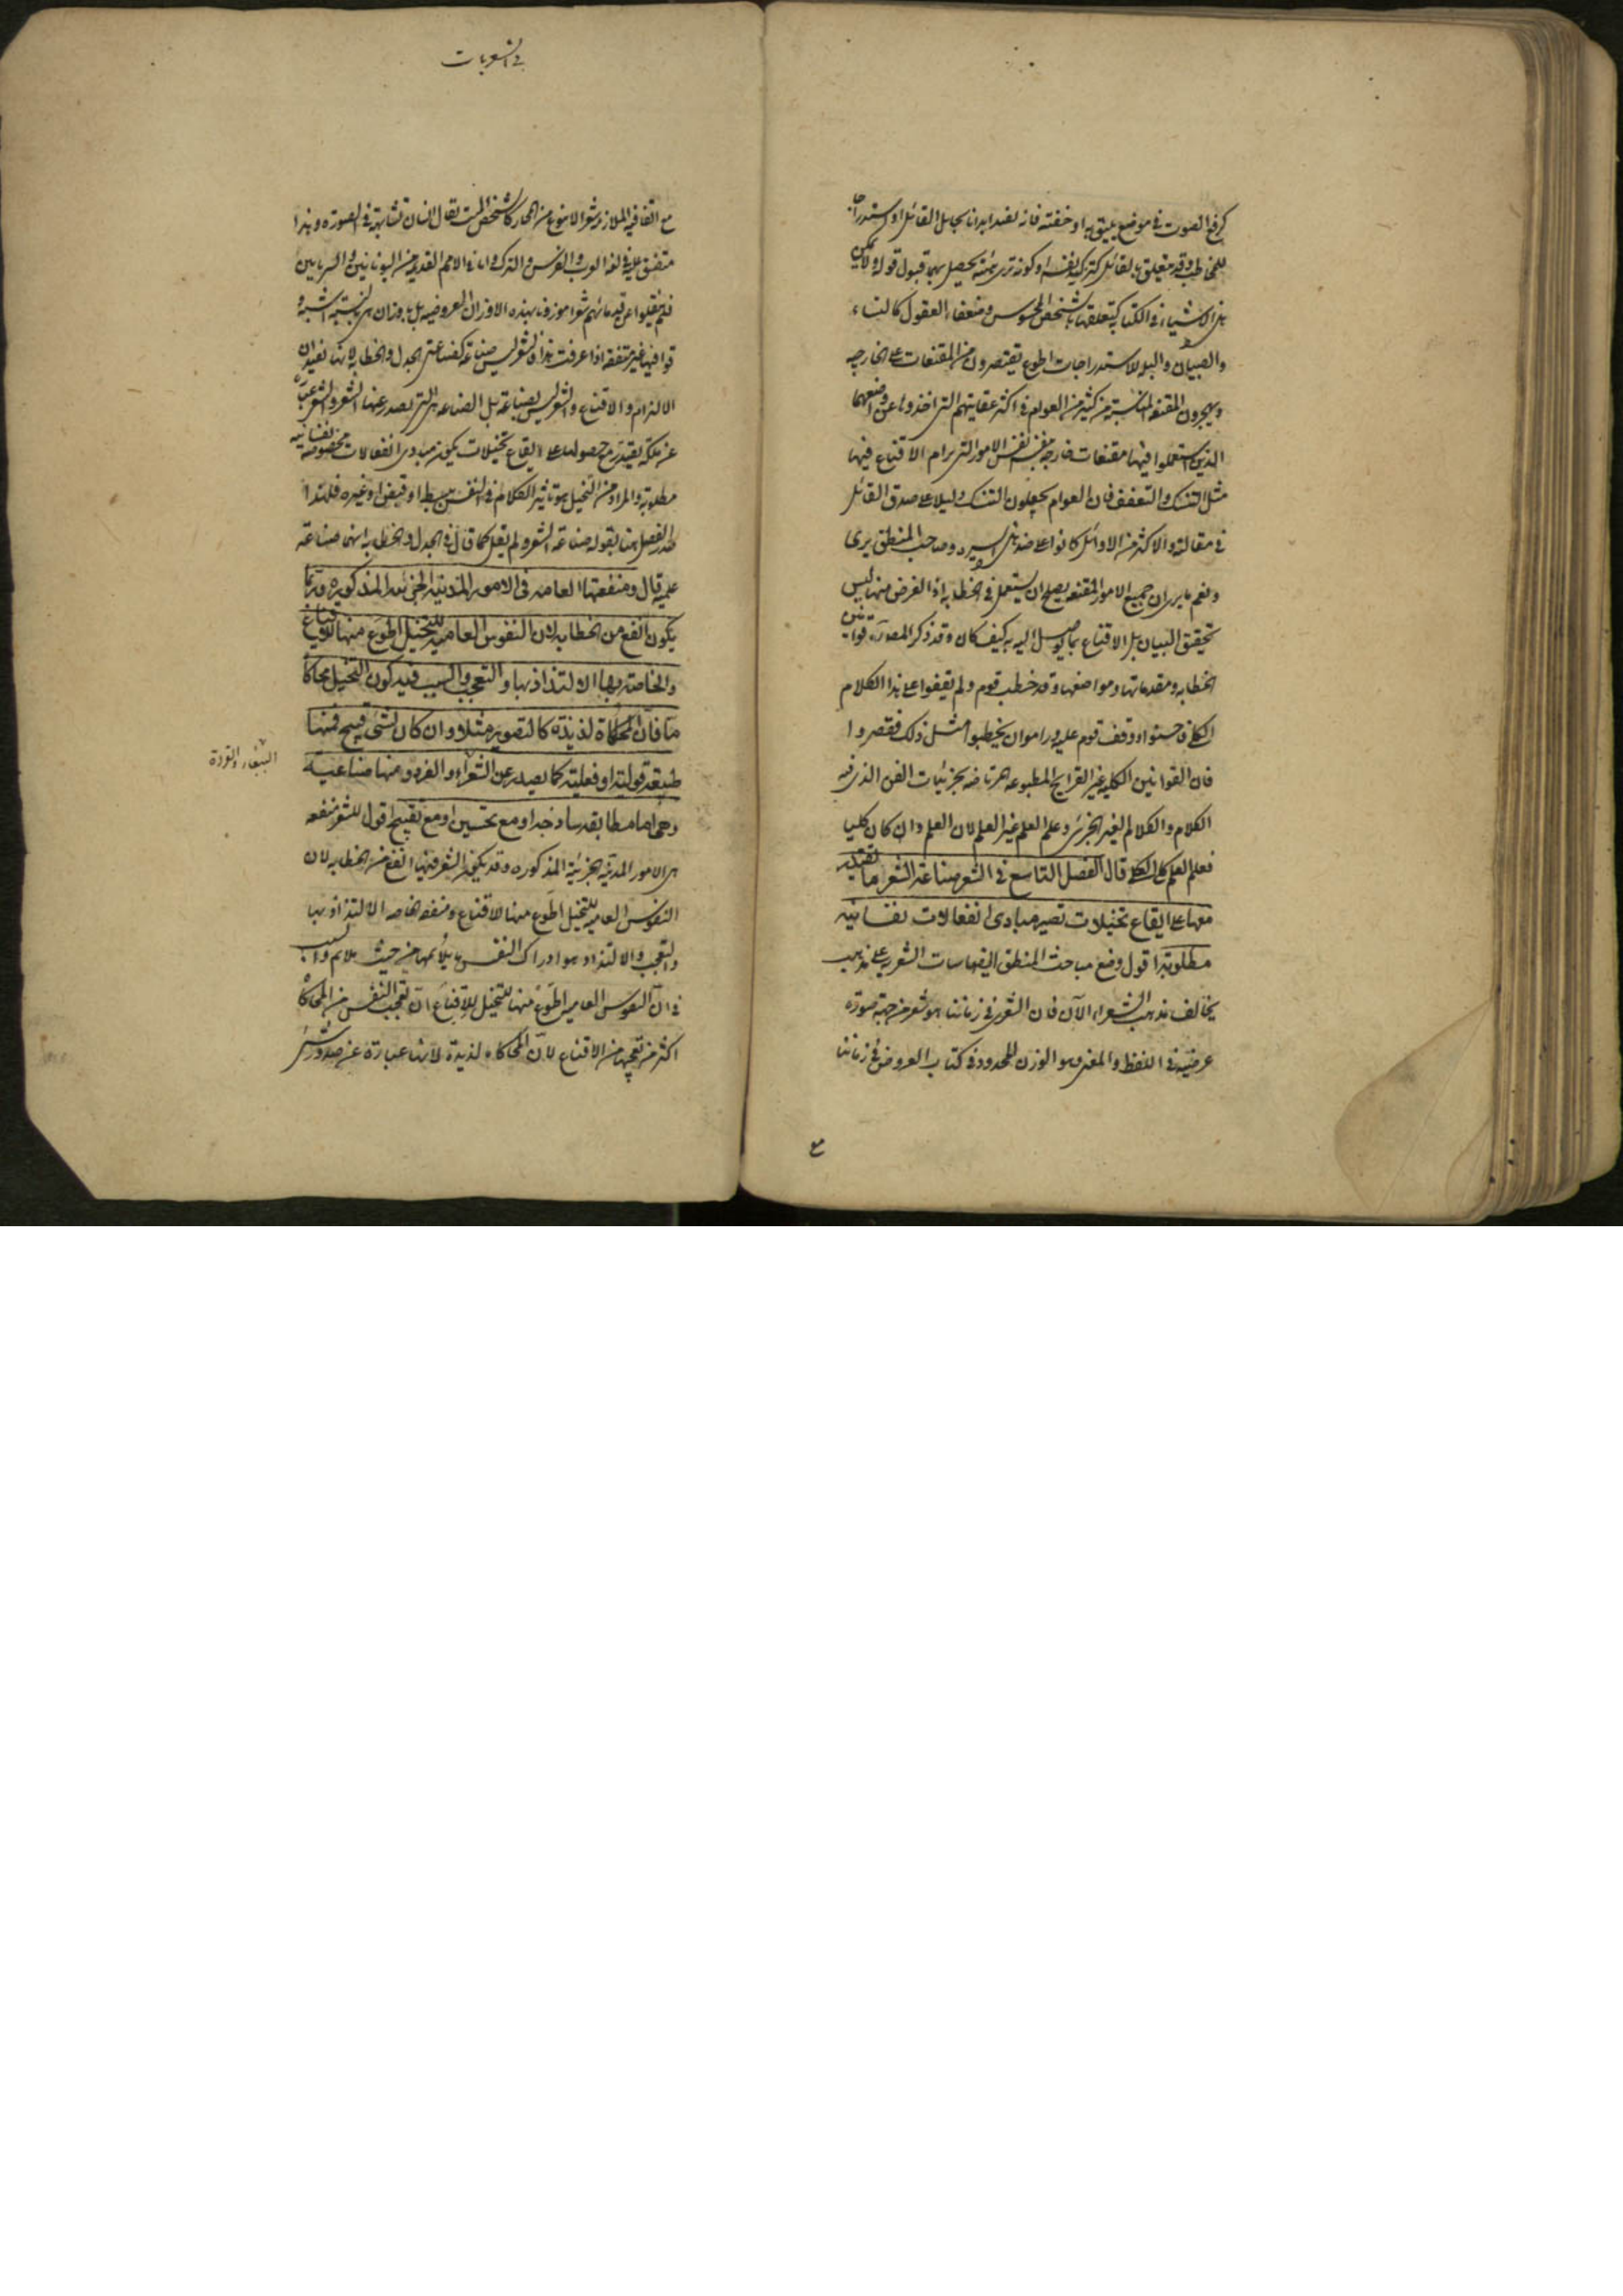 كرفع الصوت في موضع يليق به او خفته فانه يفيد ايذانا بحال القائل او استدراجا
للمخاطب وقد يتعلق بالقائل كتزكية نفسه او كونه بحيث يحصل بها قبول قوله ولا يمكن
هذه الاشياء في الكتابة لتعلقها بالشخص المحسوس وضعفاء العقول كالنساء
والصبيان والبله للاستدراجات اطوع يقتصرون من المقنعات على الخارجيه
ويهجرون المقنعه المناسبة من كثير من العوام في اكثر عقايدهم التي اخذوها عن واضعها
الذين استعملوا فيها مقنعات خارجه عن نفس الامور التي يرام الاقناع فيها
مثل التنسك والتعفف فان العوام يجعلون التنسك دليلا على صدق القائل
في مقالته والاكثر من الاوائل كانوا على ضد هذه السيره وصاحب المنطق يرى
ونعم ما يرى ان جميع الامور المقنعه يصلح ان يستعمل في الخطابه اذ الغرض منها ليس
تحقيق البيان بل الاقناع بما يوصل اليه به كيف كان وقد ذكر المصنف قوانين
الخطابه ومقدماتها ومواضعها وقد خطب قوم ولم يقفوا على هذا الكلام
الكلي فاحسنوا ووقف قوم عليه وراموا ان يخطبوا مثل ذلك فقصروا
فان القوانين الكليه غير القرايح المطبوعه المرتاضه بجزئيات الفن الذي فيه
الكلام والكلام الغير الجزئي وعلم العلم غير العلم لان العلم وان كان كليا
فعلم العلم كلي الكلي قال الفصل التاسع في الشعر صناعة الشعر ما يقتدر
معها على ايقاع تخيلات تصير مبادى انفعالات نفسانيه
مطلوبة اقول وضع مباحث المنطق القياسات الشعريه على مذهب
يخالف مذهب الشعراء الآن فان الشعر في زماننا هو شعر من جهة صورة
عرضيه في اللفظ والمعنى وهو الوزن المحدود في كتاب العروض في زماننا
مع
في الشعريات
مع القافيه الملازمه شعرا لا بنوع من المجاز كالشخص الميت يقال انسان لتشابهه في الصورة وهذا
متفق عليه في لغة العرب والفرس والترك واما في الامم القديمه من اليونانيين والسريانيين
فلم ينقلوا عن قدمائهم شعرا موزونا بهذه الاوزان العروضيه بل باوزان هي بالنسبة اشبه و
قوافيها غير متفقه اذا عرفت هذا فالشعر ليس صناعة كصناعتي الجدل والخطابه لانهما يفيدان
الالزام والاقناع والشعر ليس بصناعة بل الصناعه هي التي يصدر عنها الشعر والشعر عبارة
عن ملكة يقتدر مع حصولها على ايقاع تخيلات يكون مبادى انفعالات مخصوصه نفسانيه
مطلوبة والمراد من التخيل هو تاثير الكلام في النفس بسطا او قبضا او غيره فلهذا
صدر الفصل هنا بقوله صناعة الشعر ولم يقل كما قال في الجدل والخطابه انهما صناعة
علميه قال ومنفعتها العامه في الامور المدنية الجزئيه المذكوره وربما
يكون انفع من الخطابه لان النفوس العاميه للتخيل اطوع منها للاقناع
والخاصة بها الالتذاذ بها والتعجب والسبب فيه كون التخيل محاكاة
ما فان المحاكاة لذيذة كالتصوير مثلا وان كان لشئ قبيح فمنها
طبيعة قولية او فعلية كما يصدر عن الببغاء والقرد ومنها صناعية
وهى اما مطابقة ساذجه او مع تحسين او مع تقبيح اقول للشعر منفعه
هى الامور المدنية الجزئية المذكوره وقد يكون الشعر فيها انفع من الخطابه لان
النفوس العاميه للتخيل اطوع منها للاقناع ومنفعة خاصه الالتذاذ بها
والتعجب والالتذاذ هو ادراك النفس ما يلائمها من حيث يلائم والسبب
في ان النفوس العامية اطوع منها للتخيل للاقناع ان تعجب النفس من المحاكاة
اكثر من تعجبها من الاقناع لان المحاكاه لذيذة لانها عبارة عن صدور شئ
الببغاء والقردة